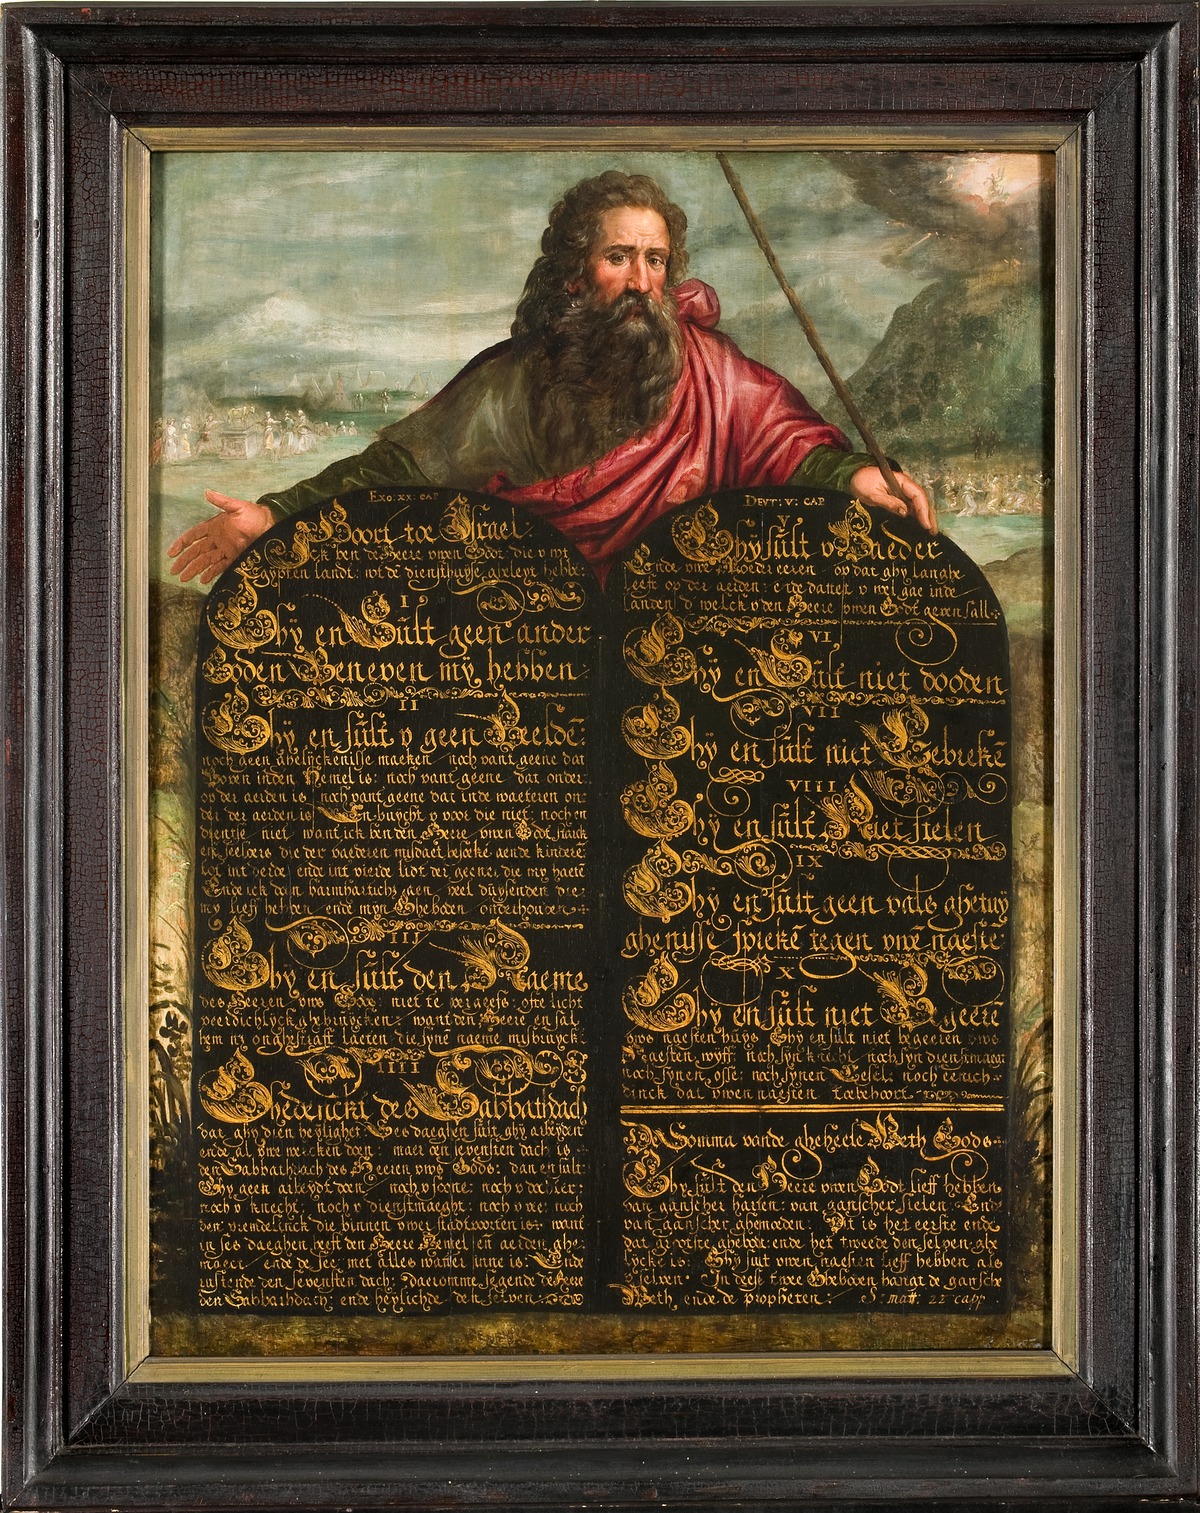 Exo: xx: cap
Hoort toe Israel
Ick ben de Heere uwen Godt die v wt
Egypten landt: wt de diensthuyse geleyt hebbe:
I
Ghÿ en Sult geen ander
Goden Beneven mÿ hebben
II
Ghÿ en sult v geen Beeldē:
noch geen ghelyckenisse maeken noch vant geene dat
Boven inden Hemel is: noch vant geene dat onder
op der aerden is noch vant geene dat inde waeteren on:
der der aerden is En buycht v voor die niet: noch en
dientse niet want ick ben den Heere uwen Godt
die der vaederen misdaet aende kinderē
tot int derde ende int vierde lidt der geener die my haetē
Ende ick doen barmharticheyt aen veel duysenden die
my lieff hebben ende myn Gheboden onderhouden
III
Ghÿ en sult den Naeme
des Heeren uws Godts niet te vergeefs: ofte licht
veerdichlyck ghebruycken: want den Heere en sal
hem niet onghestraft laeten die synē naeme misbruyckt
IIII
Ghedenckt des Sabbathdach
dat ghy dien heylighet: Ses daeghen sult ghy arbeyden
ende al uwe wercken doen: maer den sevensten dach is
den Sabbathdach des Heeren uws Gods: dan en sult
Ghy geen arbeydt doen noch v soone: noch v dochter:
noch v knecht: noch v dienstmaeght: noch v vee: noch
den vremdelinck die binnen uwer stadtpoorten is: want
in ses daeghen heeft den Heere Hemel en aerden ghe
maeckt ende de see: met alles wat er inne is: Ende
rustende den sevensten dach: Daeromme segende de Heere
den Sabbathdach: ende heylichde den selven:
Deut: v: cap
V
Ghÿ sult v Vaeder
Ende uwe Moeder eeren op dat ghy langhe
leeft op der aerden: ende dattet v wel gae inde
landen d welck v den Heere uwen Godt geven sall:
VI
Ghÿ en Sult niet dooden
VII
Ghÿ en sult niet Eebrekē
VIII
Ghÿ en sult Niet stelen
IX
Ghÿ en sult geen vals ghetuÿ
ghenisse sprekē tegen uwē naesten
X
Ghÿ en sult niet Begeerē
uws naesten huys Ghy en sult niet begeeren uws
Naesten wyff: noch syn knecht noch syn dienstmaeght
noch synen osse: noch synen Eesel: noch eenich
dinck dat uwen naesten toebehoort
De Somma vande gheheele Weth Gods
Ghy sult den Heere uwen Godt lieff hebben
van ganscher harten: van ganscher sielen: Ende
van ganscher ghemoeden: Dit is het eerste ende
dat grootste ghebott ende het tweede den selven ghe
lycke is: Ghy sult uwen naesten lieff hebben als
v selven: In deese twee Gheboden hangt de gansche
Weth ende de propheten: S: matt: 22 capp